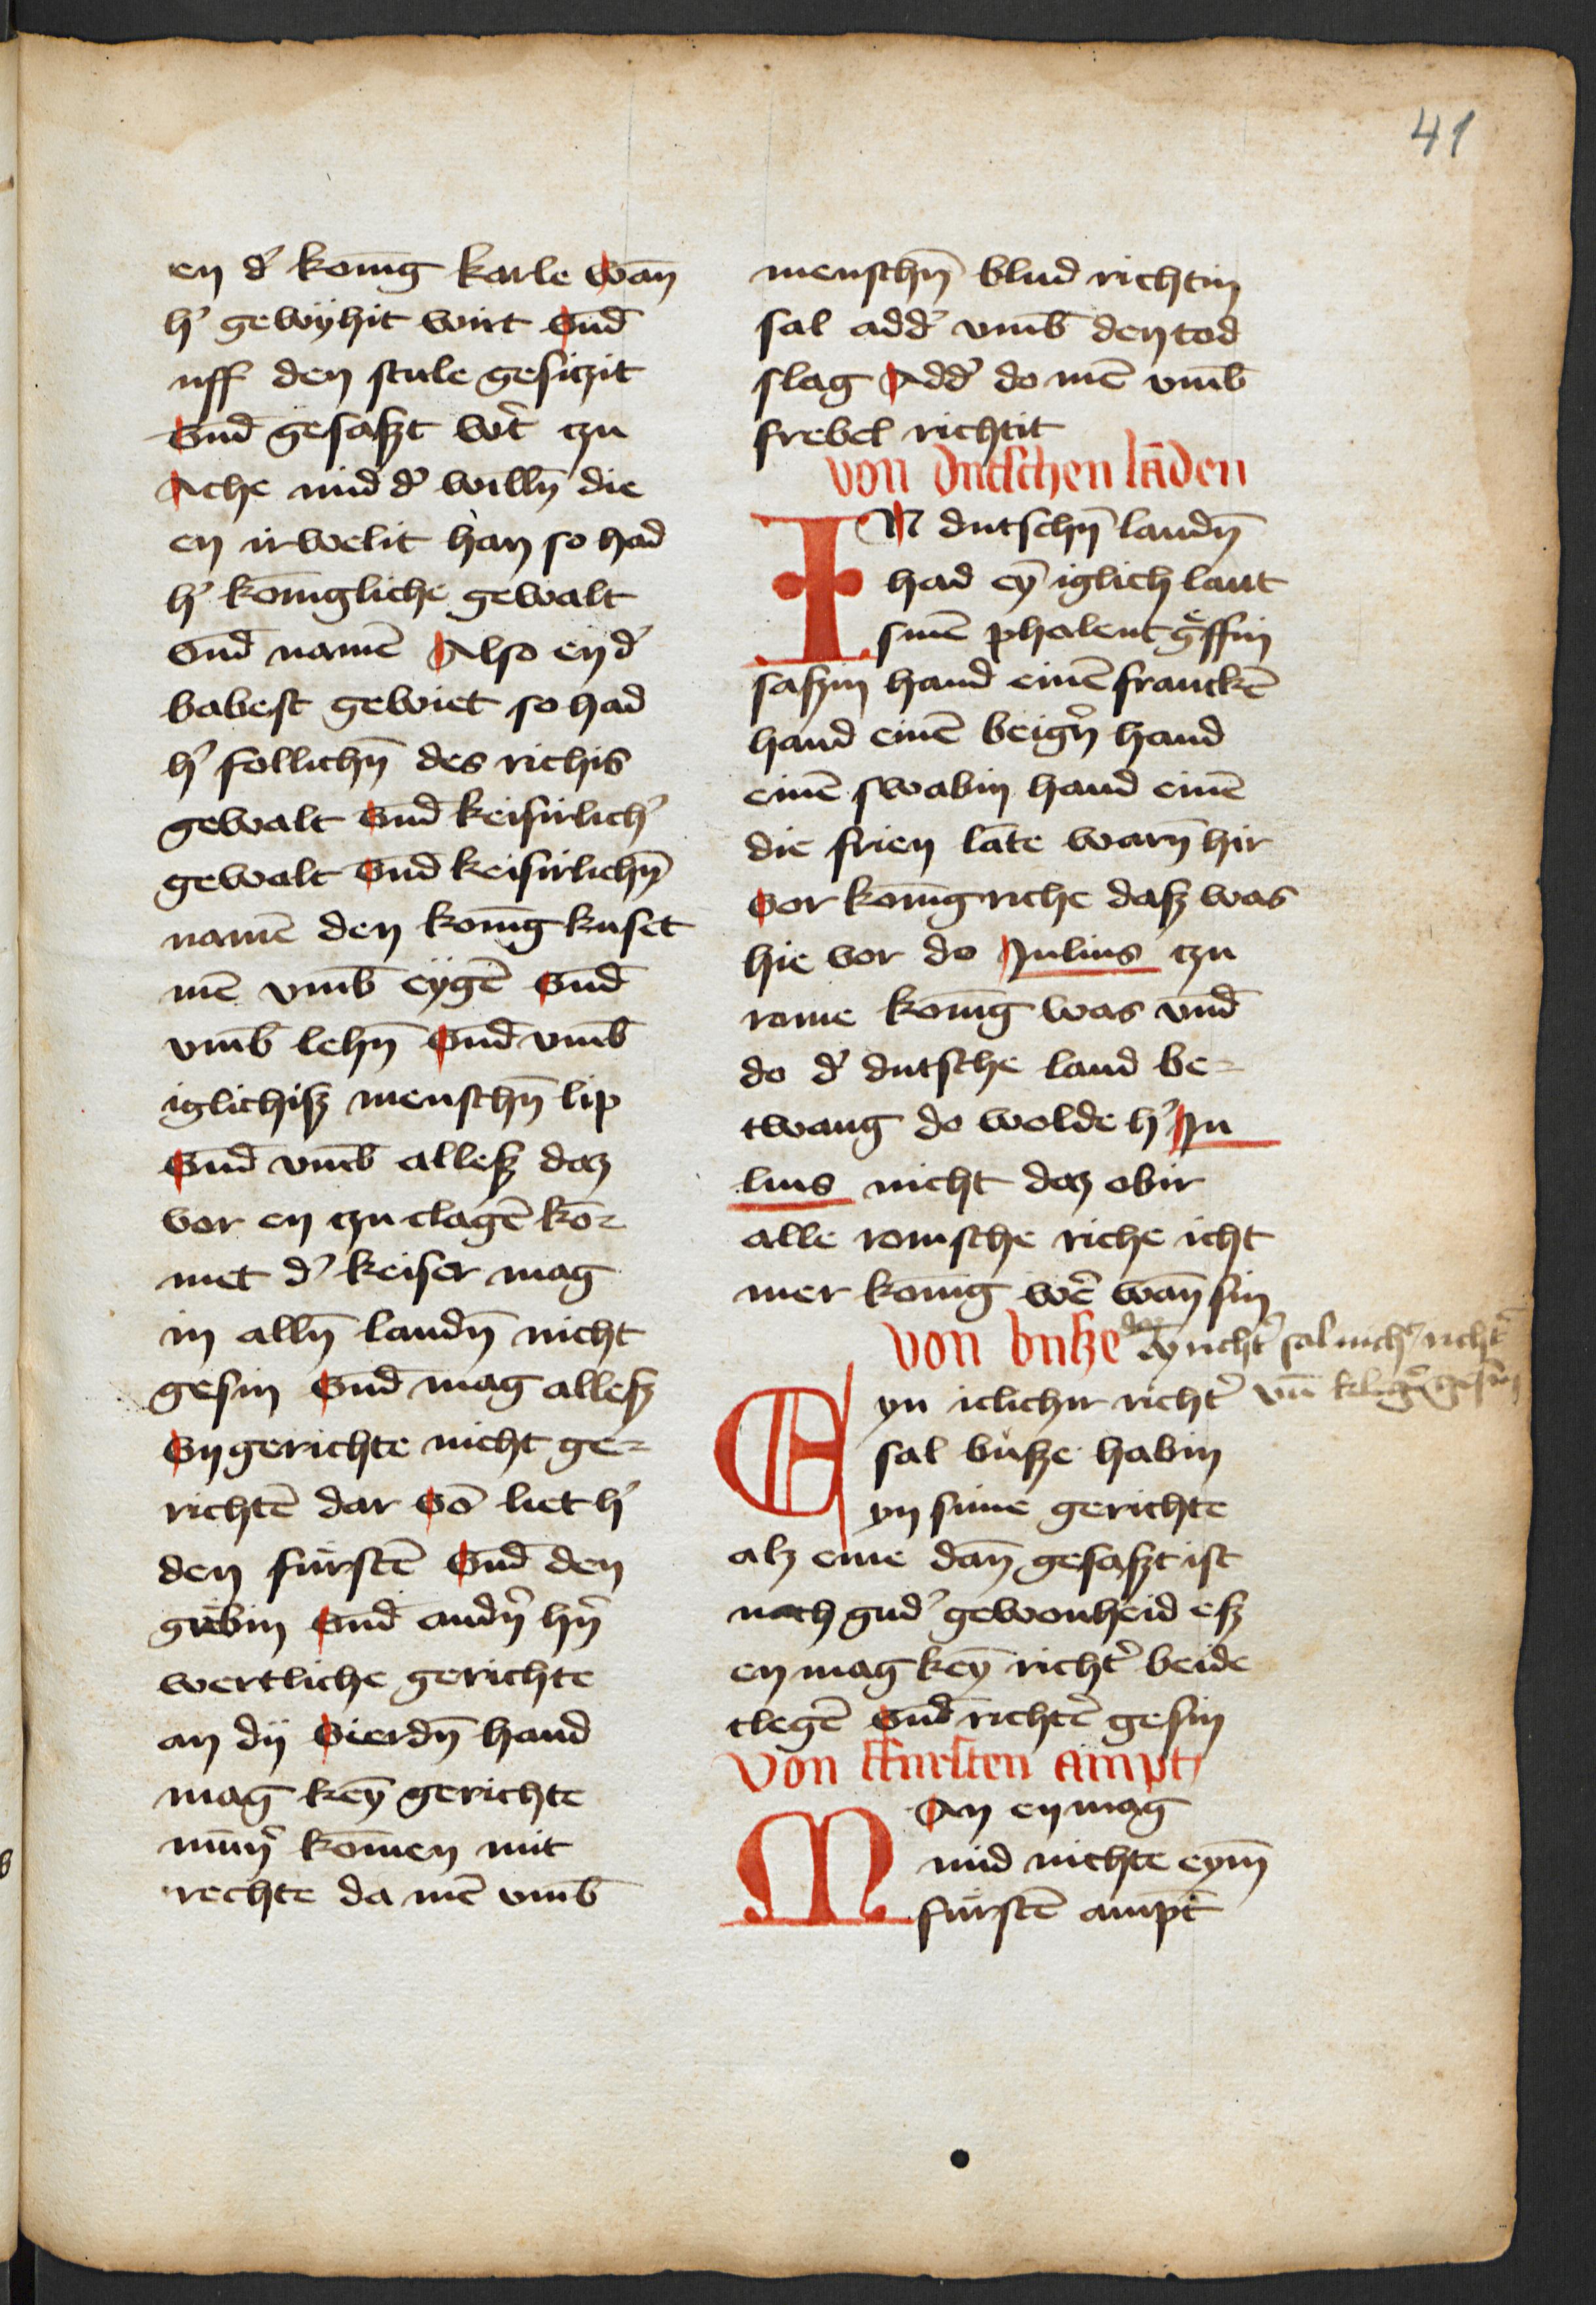 41
en d' konīg karle wān
h' gewÿhit wirt Vnd̄
uff den stule gesiczit
Vnd̄ gesaßt wt' czu
Ache mid d' willn̄ die
en irwelit han so had
h' konīgliche gewalt
Vnd̄ namē Also en d'
babest gewiet so had
h' follichn̄ des richis
gewalt Vnd̄ keisirlich'
gewalt Vnd̄ keisirlichn̄
namē den konīg kuset
mē vmb̄ eÿgē Vnd̄
vmb̄ lehn̄ Vnd̄ vmb̄
iglichiß menschn̄ lip
Vnd̄ vmb̄ alleß daz
vor en czu clagē kō-
met d' keiser mag
in alln̄ landn̄ nicht
gesin Vnd̄ mag alleß
Vngerichte nicht ge-
richtē dar Vō liet h'
den furstē Vnd̄ den
grebin Vnd̄ andn' hn'
wertliche gerichte
an dÿ Vierdn̄ hand
mag keȳ gerichte
nūm' komen mit
rechte da mē vmb̄
menschn̄ blud richtin
sal add' vmb̄ den tod
slag Add' do mē vmb̄
frebel richtit
von dutschen lāden
IN dutschn̄ landn̄
had eȳ iglich lant
sinē phalentgreffin
saßin hand einē franckē
hand einē beign' hand
einē swabin hand einē
die frien lāte warn̄ hir
Vor konīgriche daß was
hie vor do Julius czu
rome konīg was vnd̄
do d' dutsche land be-
twang do wolde h' Ju
lius nicht daz obir
alle romsche riche icht
mer konīg wē wān sin
von buße
daz eyn richt' sal nicht richt'
vn̄ kleg' gesin
Eyn iclichir richt'
sal buße habin
yn sime gerichte
alz eme dan̄ gesaßt ist
nach gud' gewonheid eß
en mag keȳ richt' beide
clegē Vnd̄ richtē gesin
Von ffursten ampt
MAn en mag
mid nichte eym̄
furstē ampt